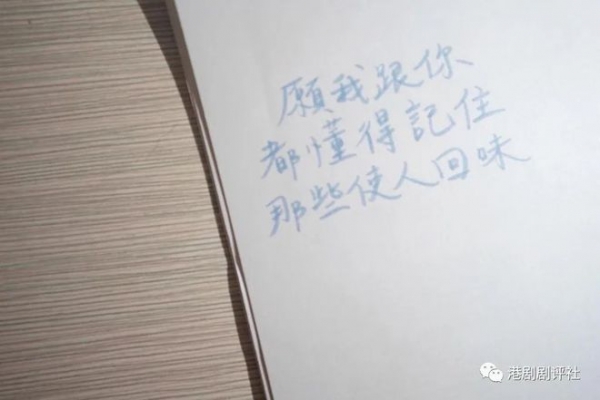 願我跟你
都懂得記住
那些使人回味
港剧剧评社